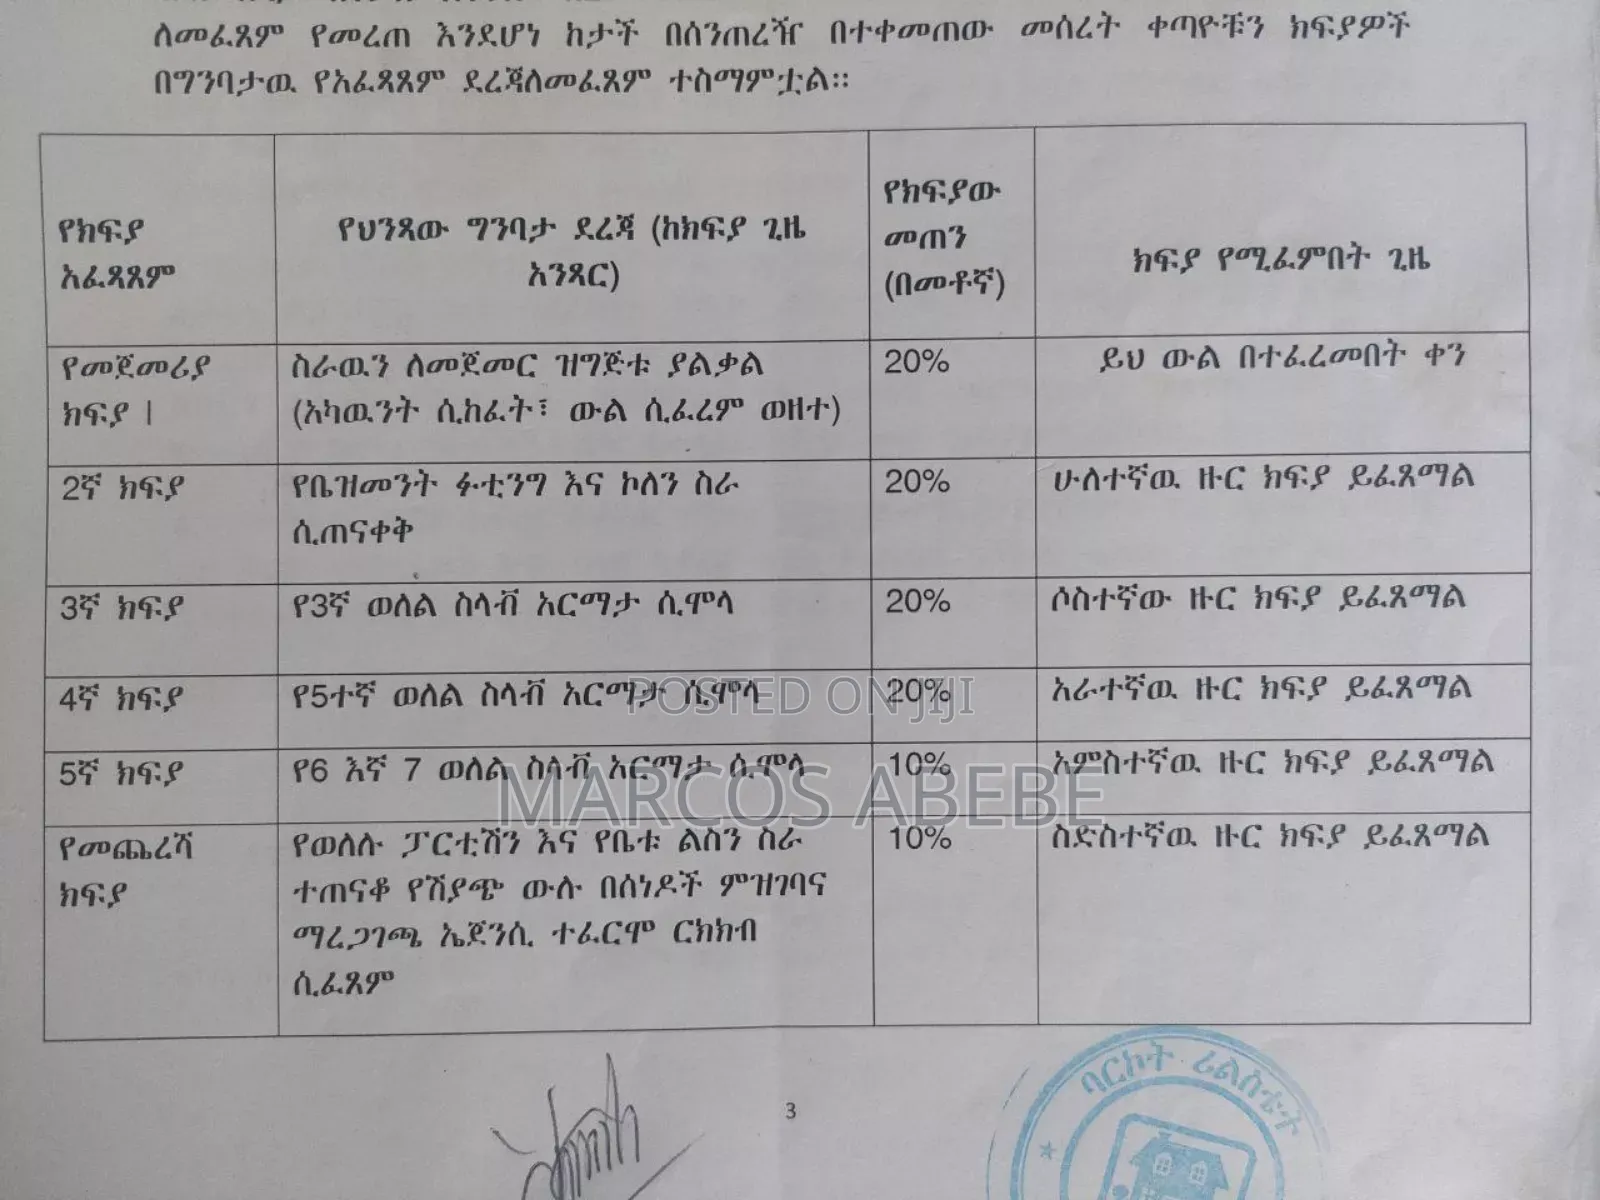 ለመፈጸም የመረጠ እንደሆነ ከታች በሰንጠረዡ በተቀመጠው መሰረት ቀጣዮቹን ክፍያዎች
በግንባታዉ የአፈጻጸም ደረጃለመፈጸም ተስማምቷል፡፡
የክፍያ
አፈጻጸም
የህንጻው ግንባታ ደረጃ (ከክፍያ ጊዜ
አንጻር)
የክፍያው
መጠን
(በመቶኛ)
ክፍያ የሚፈምበት ጊዜ
የመጀመሪያ
ክፍያ |
ስራዉን ለመጀመር ዝግጅቱ ያልቃል
(አካዉንት ሲከፈት፣ ውል ሲፈረም ወዘተ)
20%
ይህ ውል በተፈረመበት ቀን
2ኛ ክፍያ
የቤዝመንት ፉቲንግ እና ኮለን ስራ
ሲጠናቀቅ
20%
ሁለተኛዉ ዙር ክፍያ ይፈጸማል
3ኛ ክፍያ
የ3ኛ ወለል ስላቭ አርማታ ሲሞላ
20%
ሶስተኛው ዙር ክፍያ ይፈጸማል
4ኛ ክፍያ
የ5ተኛ ወለል ስላቭ አርማታ ሲሞላ
20%
አራተኛዉ ዙር ክፍያ ይፈጸማል
POSTED ON JIJI
5ኛ ክፍያ
የ6 እኛ 7 ወለል ስላቭ አርማታ ሲሞላ
10%
አምስተኛዉ ዙር ክፍያ ይፈጸማል
MARCOS ABEBE
የመጨረሻ
ክፍያ
የወለሉ ፓርቲሽን እና የቤቱ ልስን ስራ
ተጠናቆ የሽያጭ ውሉ በሰነዶች ምዝገባና
ማረጋገጫ ኤጀንሲ ተፈርሞ ርክክብ
ሲፈጸም
10%
ስድስተኛዉ ዙር ክፍያ ይፈጸማል
3
ባርኮት ሪልስቴት